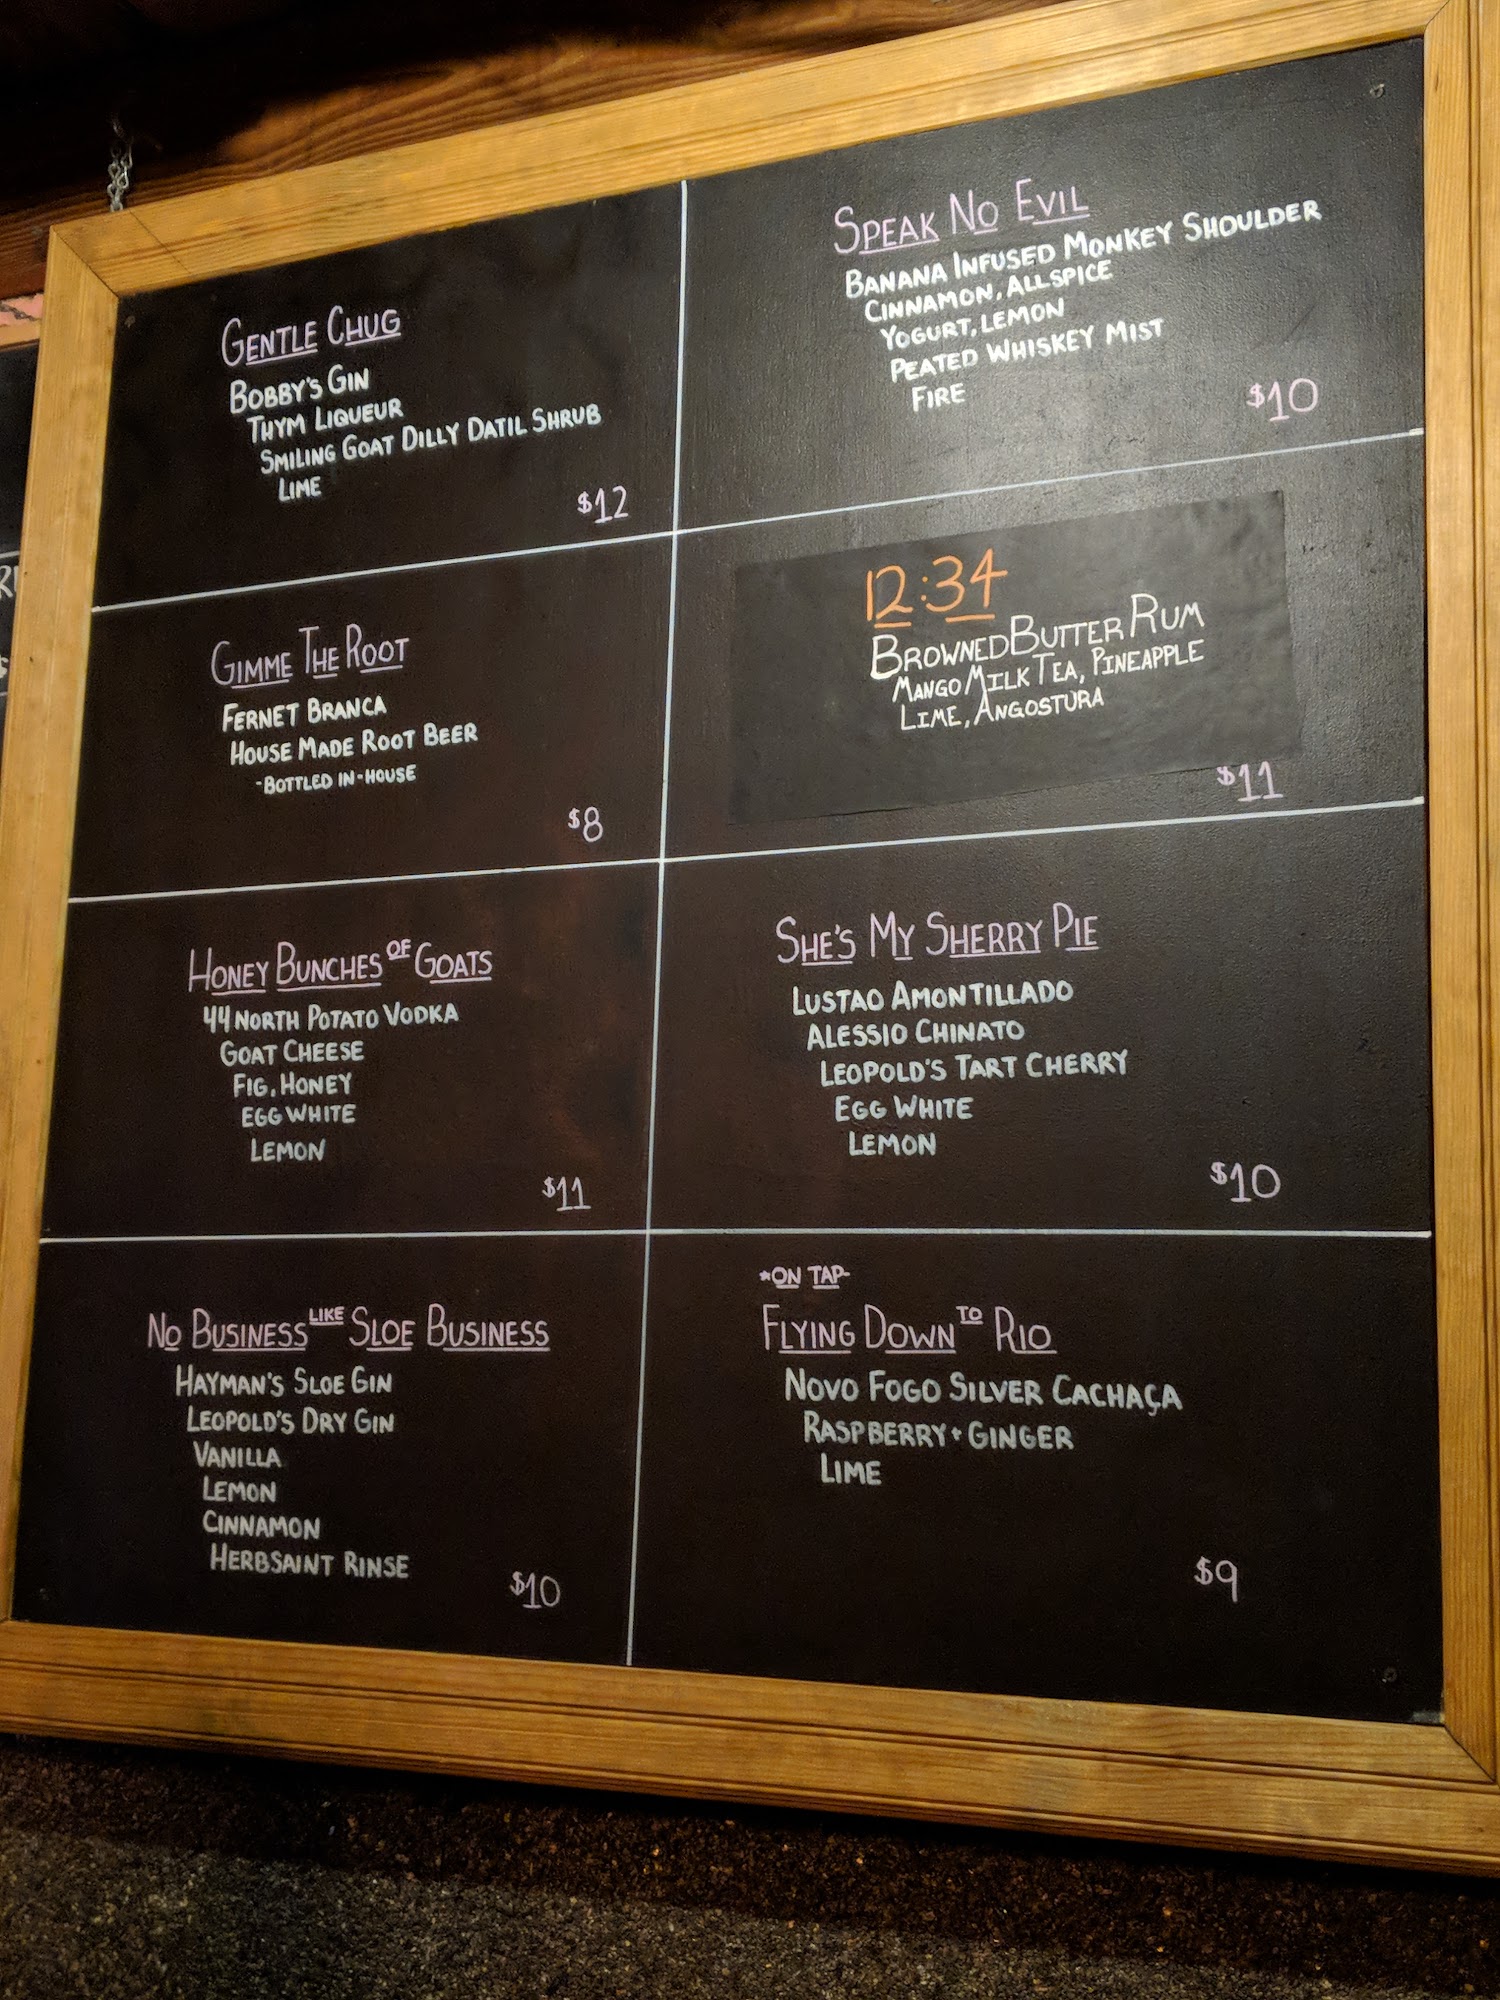 GENTLE CHUG
BOBBY'S GIN
THYM LIQUEUR
SMILING GOAT DILLY DATIL SHRUB
LIME
$12
SPEAK NO EVIL
BANANA INFUSED MONKEY SHOULDER
CINNAMON, ALLSPICE
YOGURT, LEMON
PEATED WHISKEY MIST
FIRE
$10
GIMME THE ROOT
FERNET BRANCA
HOUSE MADE ROOT BEER
-BOTTLED IN-HOUSE
$8
12:34
BROWNED BUTTER RUM
MANGO MILK TEA, PINEAPPLE
LIME, ANGOSTURA
$11
HONEY BUNCHES OF GOATS
44 NORTH POTATO VODKA
GOAT CHEESE
FIG, HONEY
EGG WHITE
LEMON
$11
SHE'S MY SHERRY PIE
LUSTAO AMONTILLADO
ALESSIO CHINATO
LEOPOLD'S TART CHERRY
EGG WHITE
LEMON
$10
NO BUSINESS LIKE SLOE BUSINESS
HAYMAN'S SLOE GIN
LEOPOLD'S DRY GIN
VANILLA
LEMON
CINNAMON
HERBSAINT RINSE
$10
*ON TAP-
FLYING DOWN TO RIO
NOVO FOGO SILVER CACHAÇA
RASPBERRY + GINGER
LIME
$9